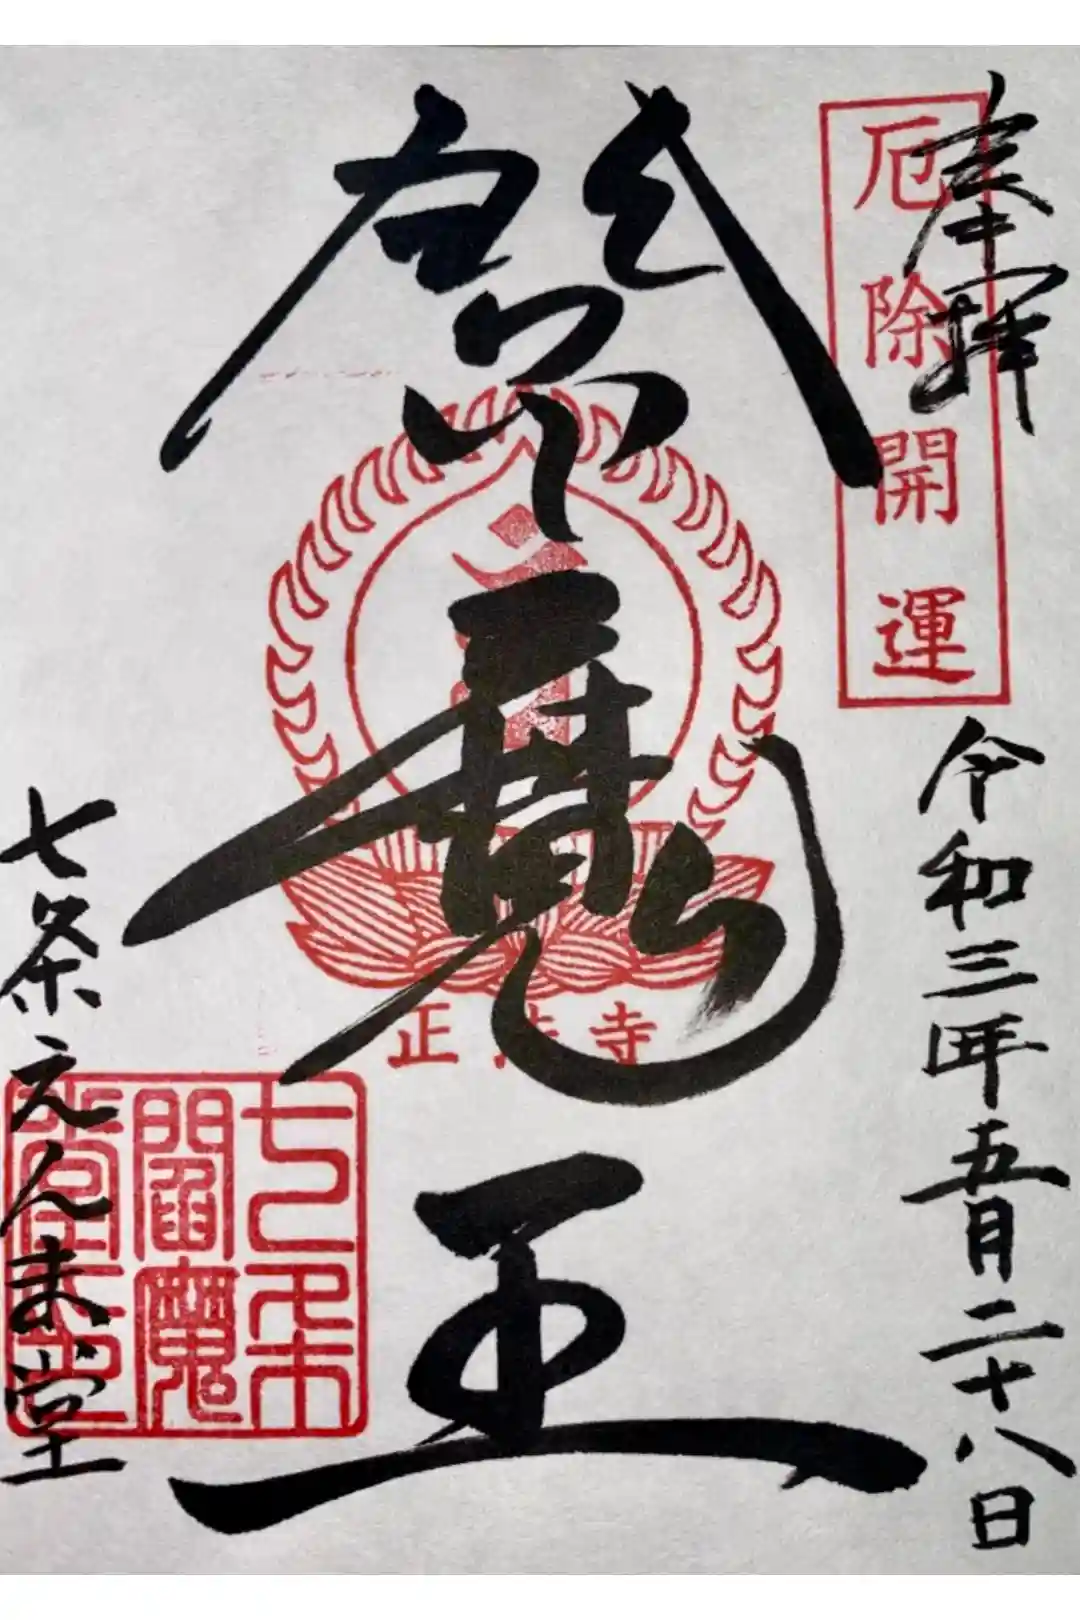 奉拝
厄除開運
令和三年五月二十八日
閻魔王
正法寺
七条えんま堂
七条
閻魔
堂印